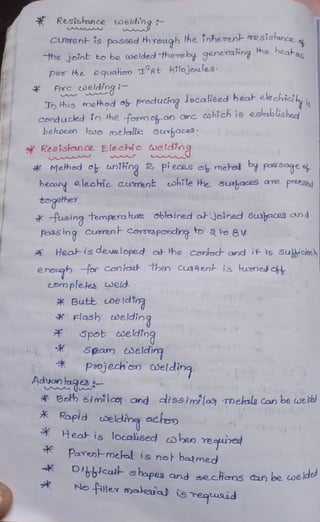 * Resistance welding :-
Current is passed through the inherent resistance of
the joint to be welded thereby generating the heat as
per the equation I²Rt kilojoules.
* Arc welding:-
In this method of producing localised heat electricity is
conducted in the form of an arc which is established
between two metallic surfaces.
* Resistance Electric welding
* Method of uniting 2 pieces of metal by passage of
heavy electric current while the surfaces are pressed
together
* fusing temperature obtained at joined surfaces and
passing current corresponding to 2 to 8V
* Heat is developed at the contact and it is sufficiently
enough for contact then current is turned off
completes weld.
* Butt welding
* Flash welding
* Spot welding
* Seam welding
* Projection welding.
Advantages :-
* Both similar and dissimilar metals can be welded
* Rapid welding action
* Heat is localised when required
* Parent metal is not harmed
* Difficult shapes and sections can be welded
* No filler material is required